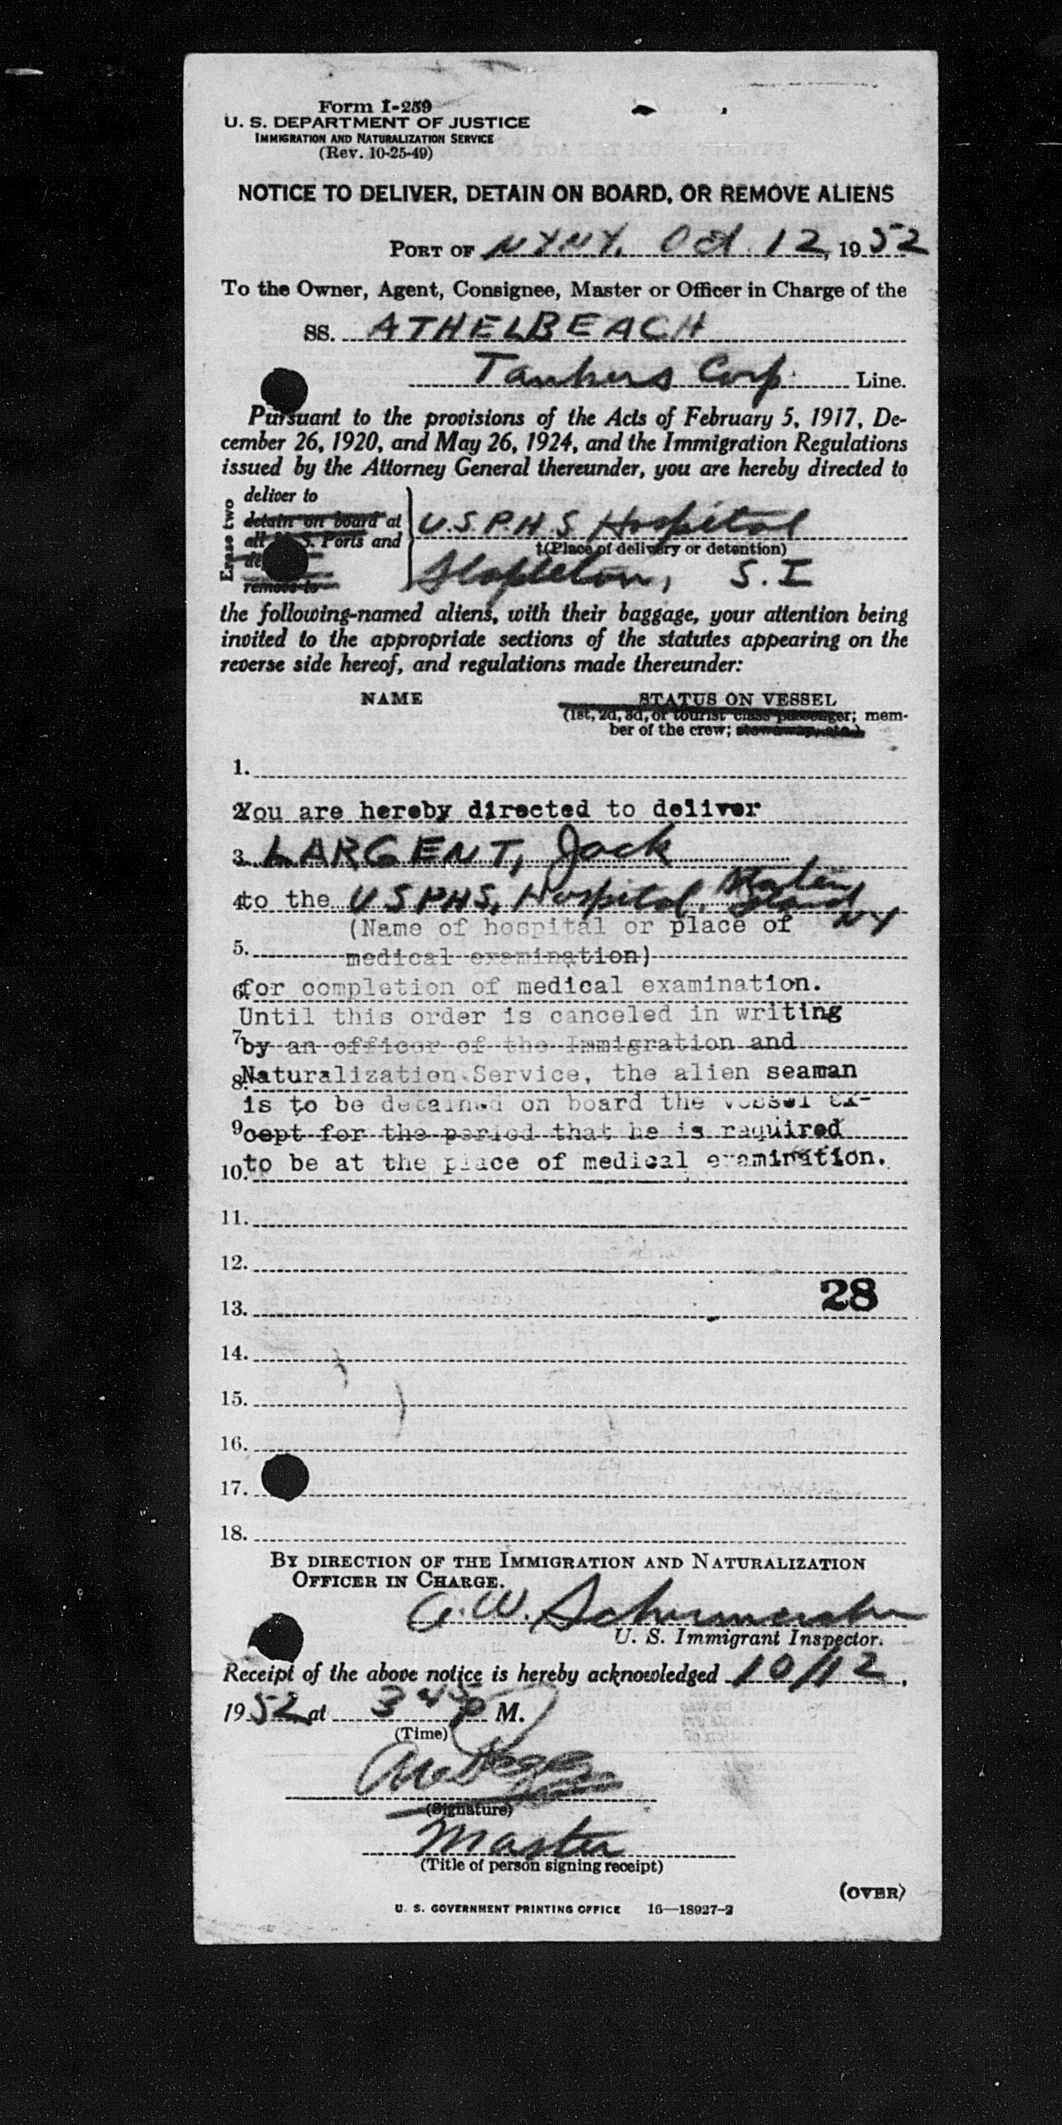 Form I-259
U. S. DEPARTMENT OF JUSTICE
IMMIGRATION AND NATURALIZATION SERVICE
(Rev. 10-25-49)
NOTICE TO DELIVER, DETAIN ON BOARD, OR REMOVE ALIENS
PORT OF NYNY. Oct. 12, 1952
To the Owner, Agent, Consignee, Master or Officer in Charge of the
SS. ATHELBEACH
Tankers Corp. Line.
Pursuant to the provisions of the Acts of February 5, 1917, De-
cember 26, 1920, and May 26, 1924, and the Immigration Regulations
issued by the Attorney General thereunder, you are hereby directed to
Erase two
deliver to
detain on board at
all U. S. Ports and
remove to
U.S.P.H.S Hospital
†(Place of delivery or detention)
Stapleton, S. I
the following-named aliens, with their baggage, your attention being
invited to the appropriate sections of the statutes appearing on the
reverse side hereof, and regulations made thereunder:
NAME STATUS ON VESSEL
(1st, 2d, 3d, or tourist class passenger; mem-
ber of the crew; stowaway, etc.)
1.
2. You are hereby directed to deliver
3. LARGENT, Jack
4. to the USPHS, Hospital, Staten Island NY
(Name of hospital or place of
5. medical examination)
6. for completion of medical examination.
Until this order is canceled in writing
7. by an officer of the Immigration and
8. Naturalization Service, the alien seaman
is to be detained on board the vessel ex-
9. cept for the period that he is required
10. to be at the place of medical examination.
11.
12.
13. 28
14.
15.
16.
17.
18.
BY DIRECTION OF THE IMMIGRATION AND NATURALIZATION
OFFICER IN CHARGE.
U. S. Immigrant Inspector.
Receipt of the above notice is hereby acknowledged 10/12,
1952 at 3 45 P M.
(Time)
(Signature)
Master
(Title of person signing receipt)
(OVER)
U. S. GOVERNMENT PRINTING OFFICE 16—18927-2